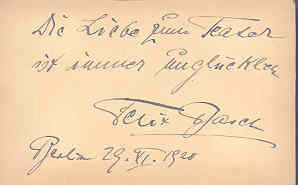 Die Liebe zum Teater
ist immer unglücklich
Felix Basch
Berlin 29. VI. 1920